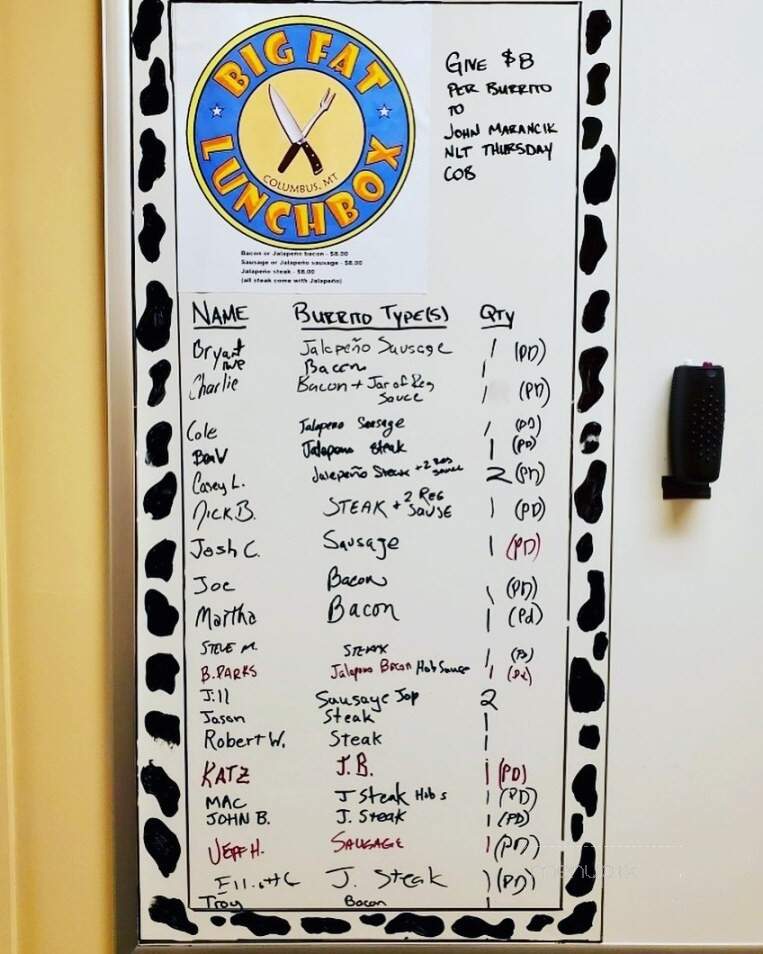 BIG FAT
LUNCHBOX
COLUMBUS, MT
Bacon or Jalapeño bacon - $8.00
Sausage or Jalapeño sausage - $8.00
Jalapeño steak - $8.00
(all steak come with Jalapeño)
GIVE $8
PER BURRITO
TO
JOHN MARANCIK
NLT THURSDAY
COB
NAME BURRITO TYPE(S) QTY
Bryant Jalapeño Sausage 1 (PD)
Bacon 1
Charlie Bacon + Jar of Reg (PD)
Sauce
Cole Jalapeno Sausage 1 (PD)
Ben V Jalapeno Steak 1 (PD)
Casey L. Jalapeño Steak + 2 Reg sauce 2 (PD)
Nick B. STEAK + 2 REG SAUSE 1 (PD)
Josh C. Sausage 1 (PD)
Joe Bacon 1 (PD)
Martha Bacon 1 (Pd)
STEVE M. STEAK 1 (PD)
B. PARKS Jalapeno Bacon Hot Sauce 1 (Pd)
Jill Sausage Jap 2
Jason Steak 1
Robert W. Steak 1
KATZ J.B. 1 (PD)
MAC J Steak Hot s 1 (PD)
JOHN B. J. Steak 1 (PD)
JEFF H. SAUSAGE 1 (PD)
Elliott C J. Steak 1 (PD)
Troy Bacon 1